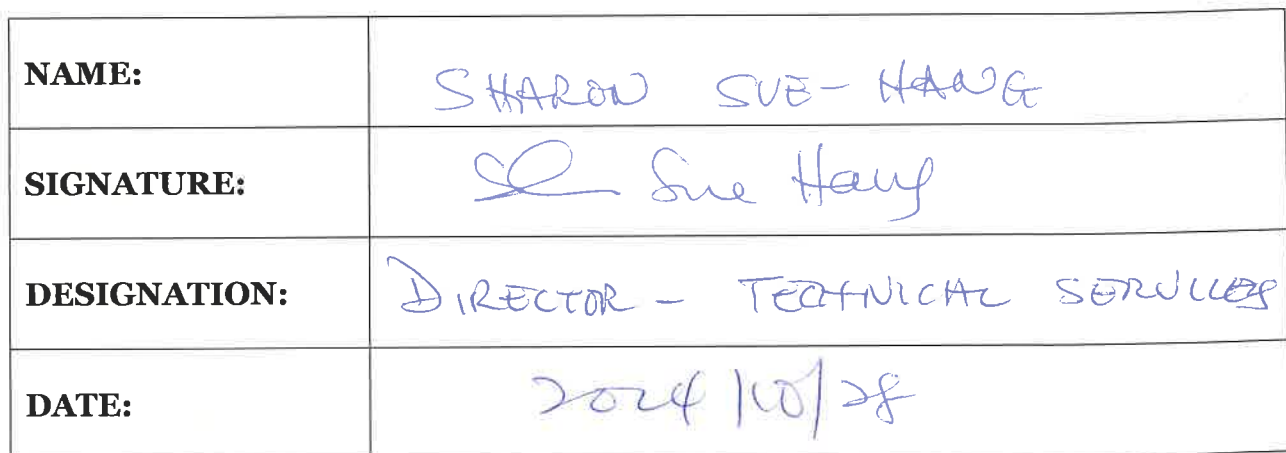 NAME: SHARON SUE-HANG
SIGNATURE: Sue Hang
DESIGNATION: DIRECTOR - TECHNICAL SERVICES
DATE: 2024/10/28